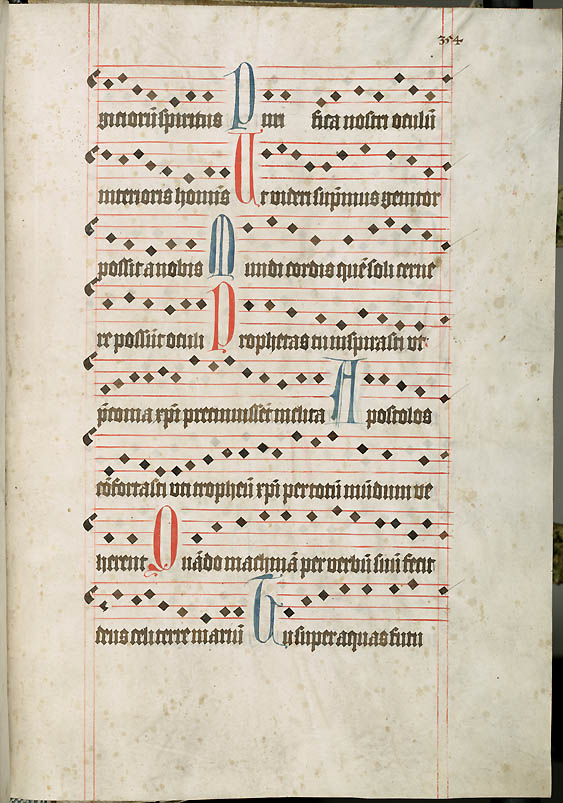 354
vitiorũ spiritus Puri fica nostri oculũ
interioris homĩs Ut videri sup̃mus genitor
possit a nobis Mundi cordis quẽ soli cerne
re possũt oculi Prophetas tu inspirasti vt
p̃conia xp̃i precinuissẽt inclita Apostolos
cõfortasti vti tropheũ xp̃i per totũ mũdum ve
herent Quãdo machinã per verbũ suũ fecit
deus celi terre mariũ Tu super aquas futu